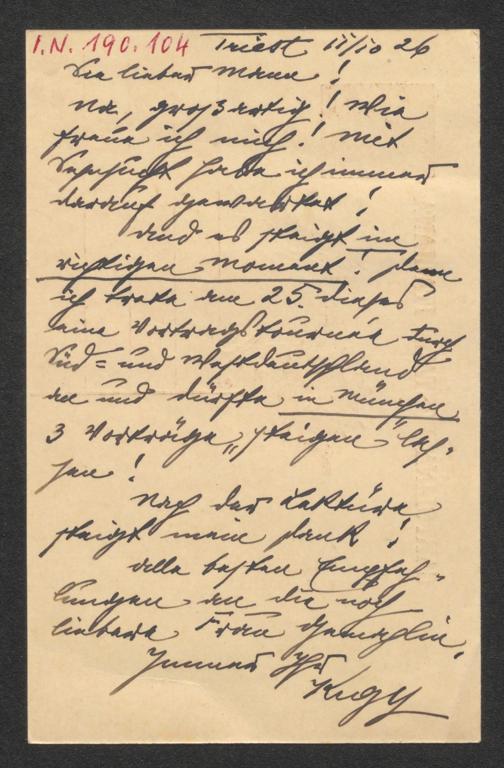 I.N. 190.104
Triest 11/10 26
Sie lieber Mann!
Na, großartig! Wie
freue ich mich! Mit
Sehnsucht habe ich immer
darauf gewartet!
Und es steigt im
richtigen Moment! Denn
ich trete am 25. dieses
eine Vortragstournée durch
Süd= und Westdeutschland
an und dürfte in München
3 Vorträge „steigen" las-
sen!
Nach der Lektüre
steigt mein Dank!
Alle besten Empfeh-
lungen an die noch
liebere Frau Gemahlin.
Immer Ihr
Kugy